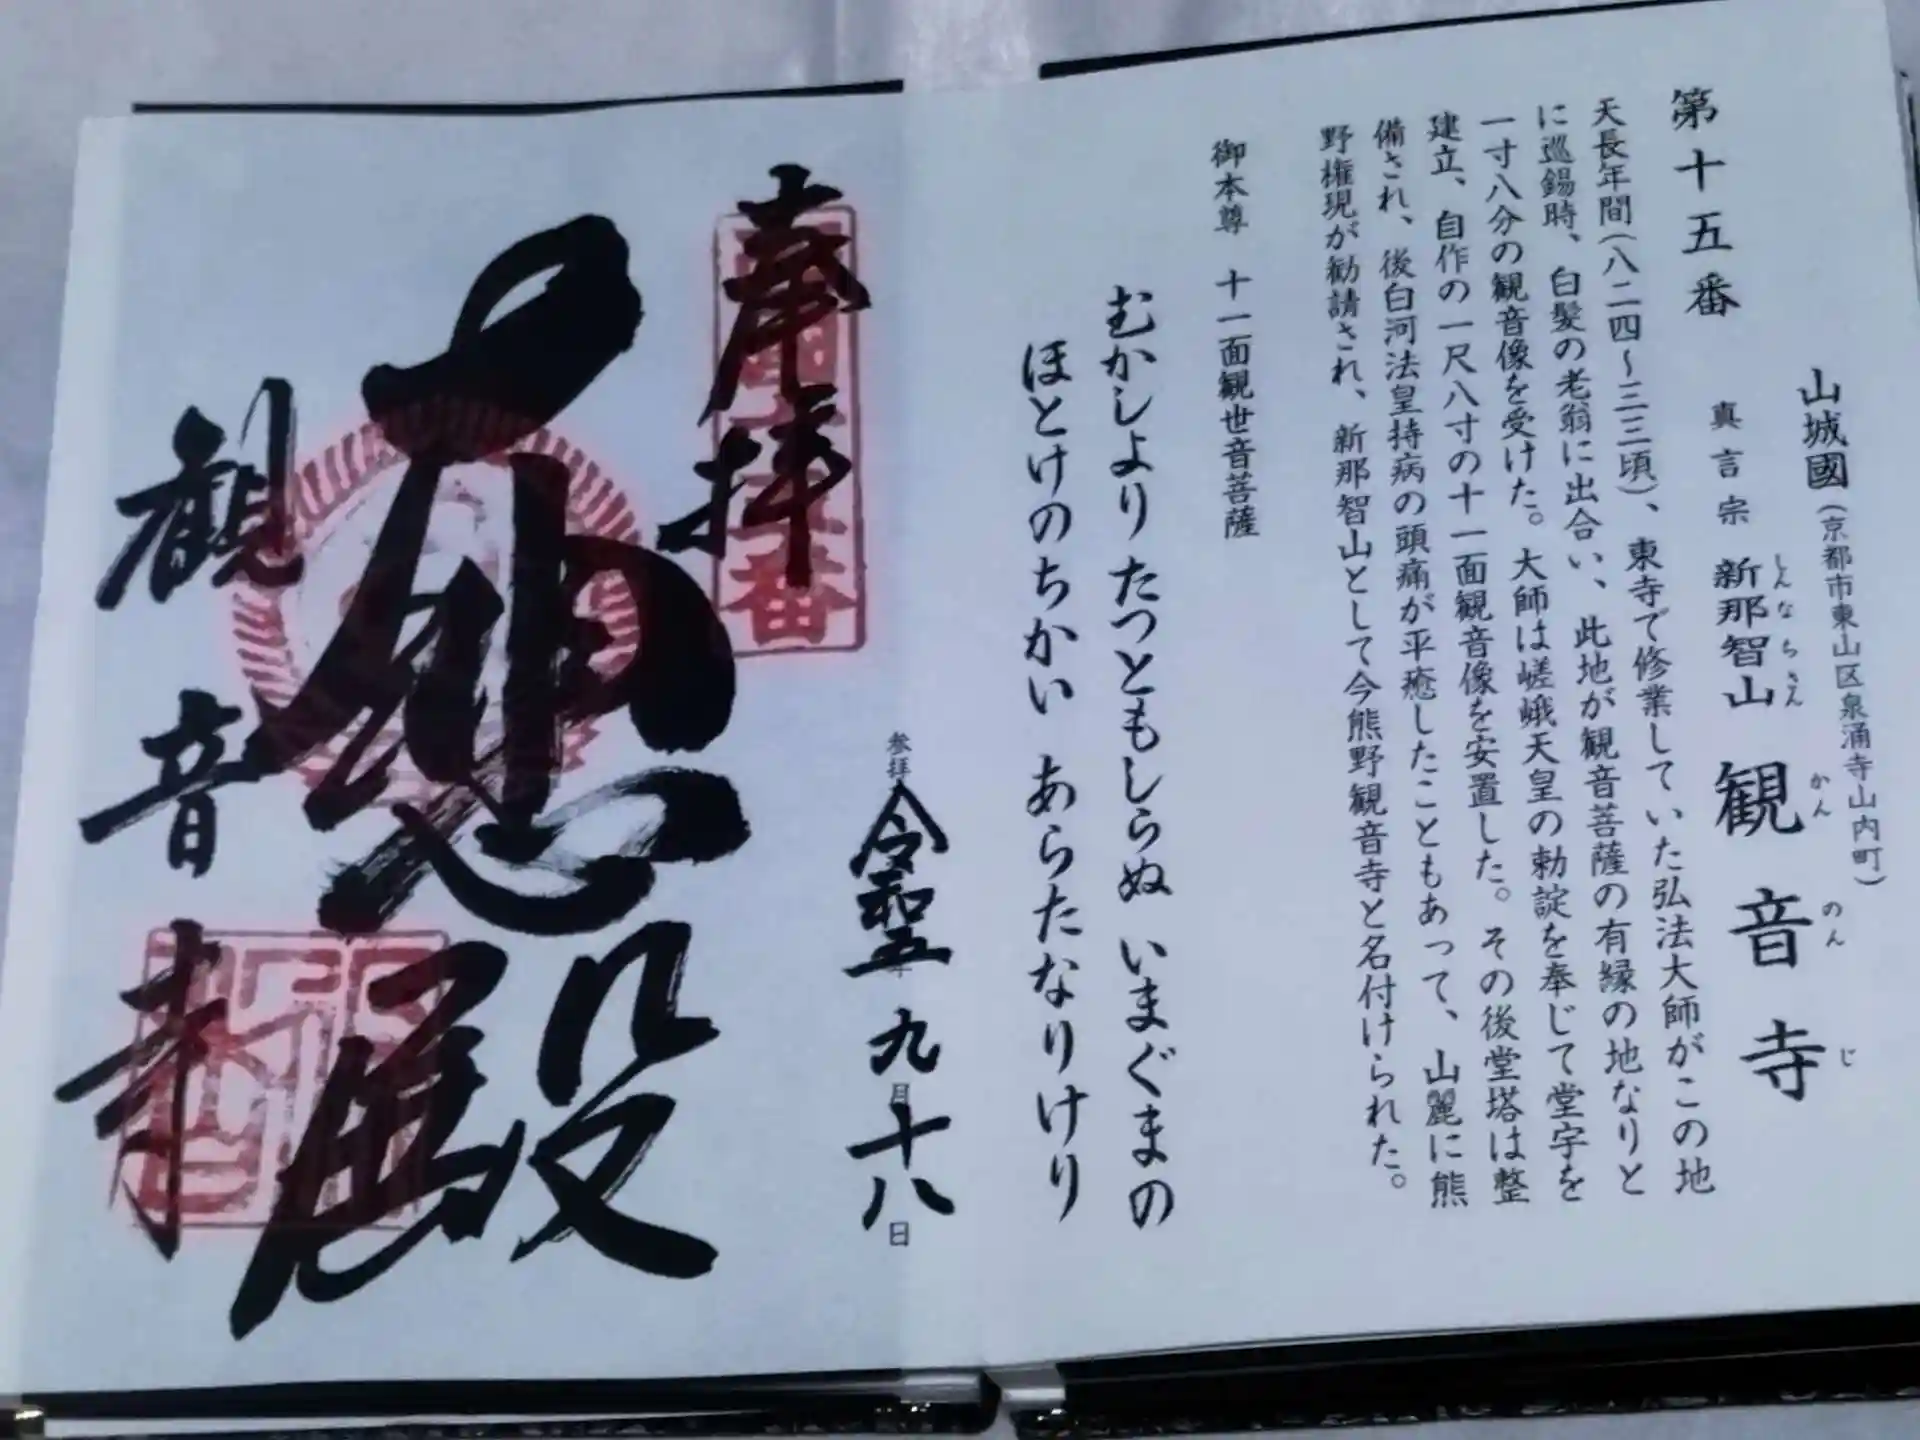 山城國(京都市東山区泉涌寺山内町)
第十五番 真言宗 新那智山 観音寺
しんなちさん かんのんじ
天長年間(八二四〜三三頃)、東寺で修業していた弘法大師がこの地
に巡錫時、白髪の老翁に出合い、此地が観音菩薩の有縁の地なりと
一寸八分の観音像を受けた。大師は嵯峨天皇の勅諚を奉じて堂宇を
建立、自作の一尺八寸の十一面観音像を安置した。その後堂塔は整
備され、後白河法皇持病の頭痛が平癒したこともあって、山麗に熊
野権現が勧請され、新那智山として今熊野観音寺と名付けられた。
御本尊 十一面観世音菩薩
むかしより たつともしらぬ いまぐまの
ほとけのちかい あらたなりけり
参拝 令和 五年 九月十八日
奉拝
大悲殿
観音寺